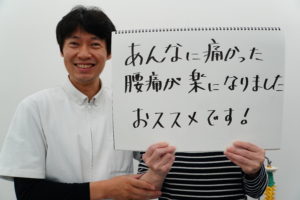 あんなに痛かった
腰痛が楽になりました
おススメです!